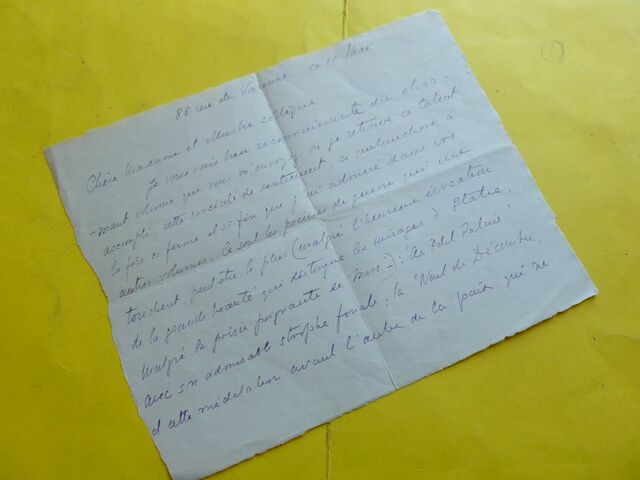 88 rue de Varenne. ce 10 Mai
Chère Madame et Illustre collègue
Je vous suis bien reconnaissante du char-
-mant volume que vous m'envoyez où je retrouve ce talent
accompli, cette sincérité de sentiment, ce à
la fois si ferme et si fin que j'ai admiré dans vos
autres volumes. Ce sont les poèmes de guerre qui me
touchent peut-être le plus (malgré l'heureuse évocation
de la grande beauté qui distingue les mirages d'
malgré la poignante de : Au Petit Palais,
avec son admirable strophe finale ; la Nuit de Décembre,
et cette méditation avant l'aube de la paix qui ne